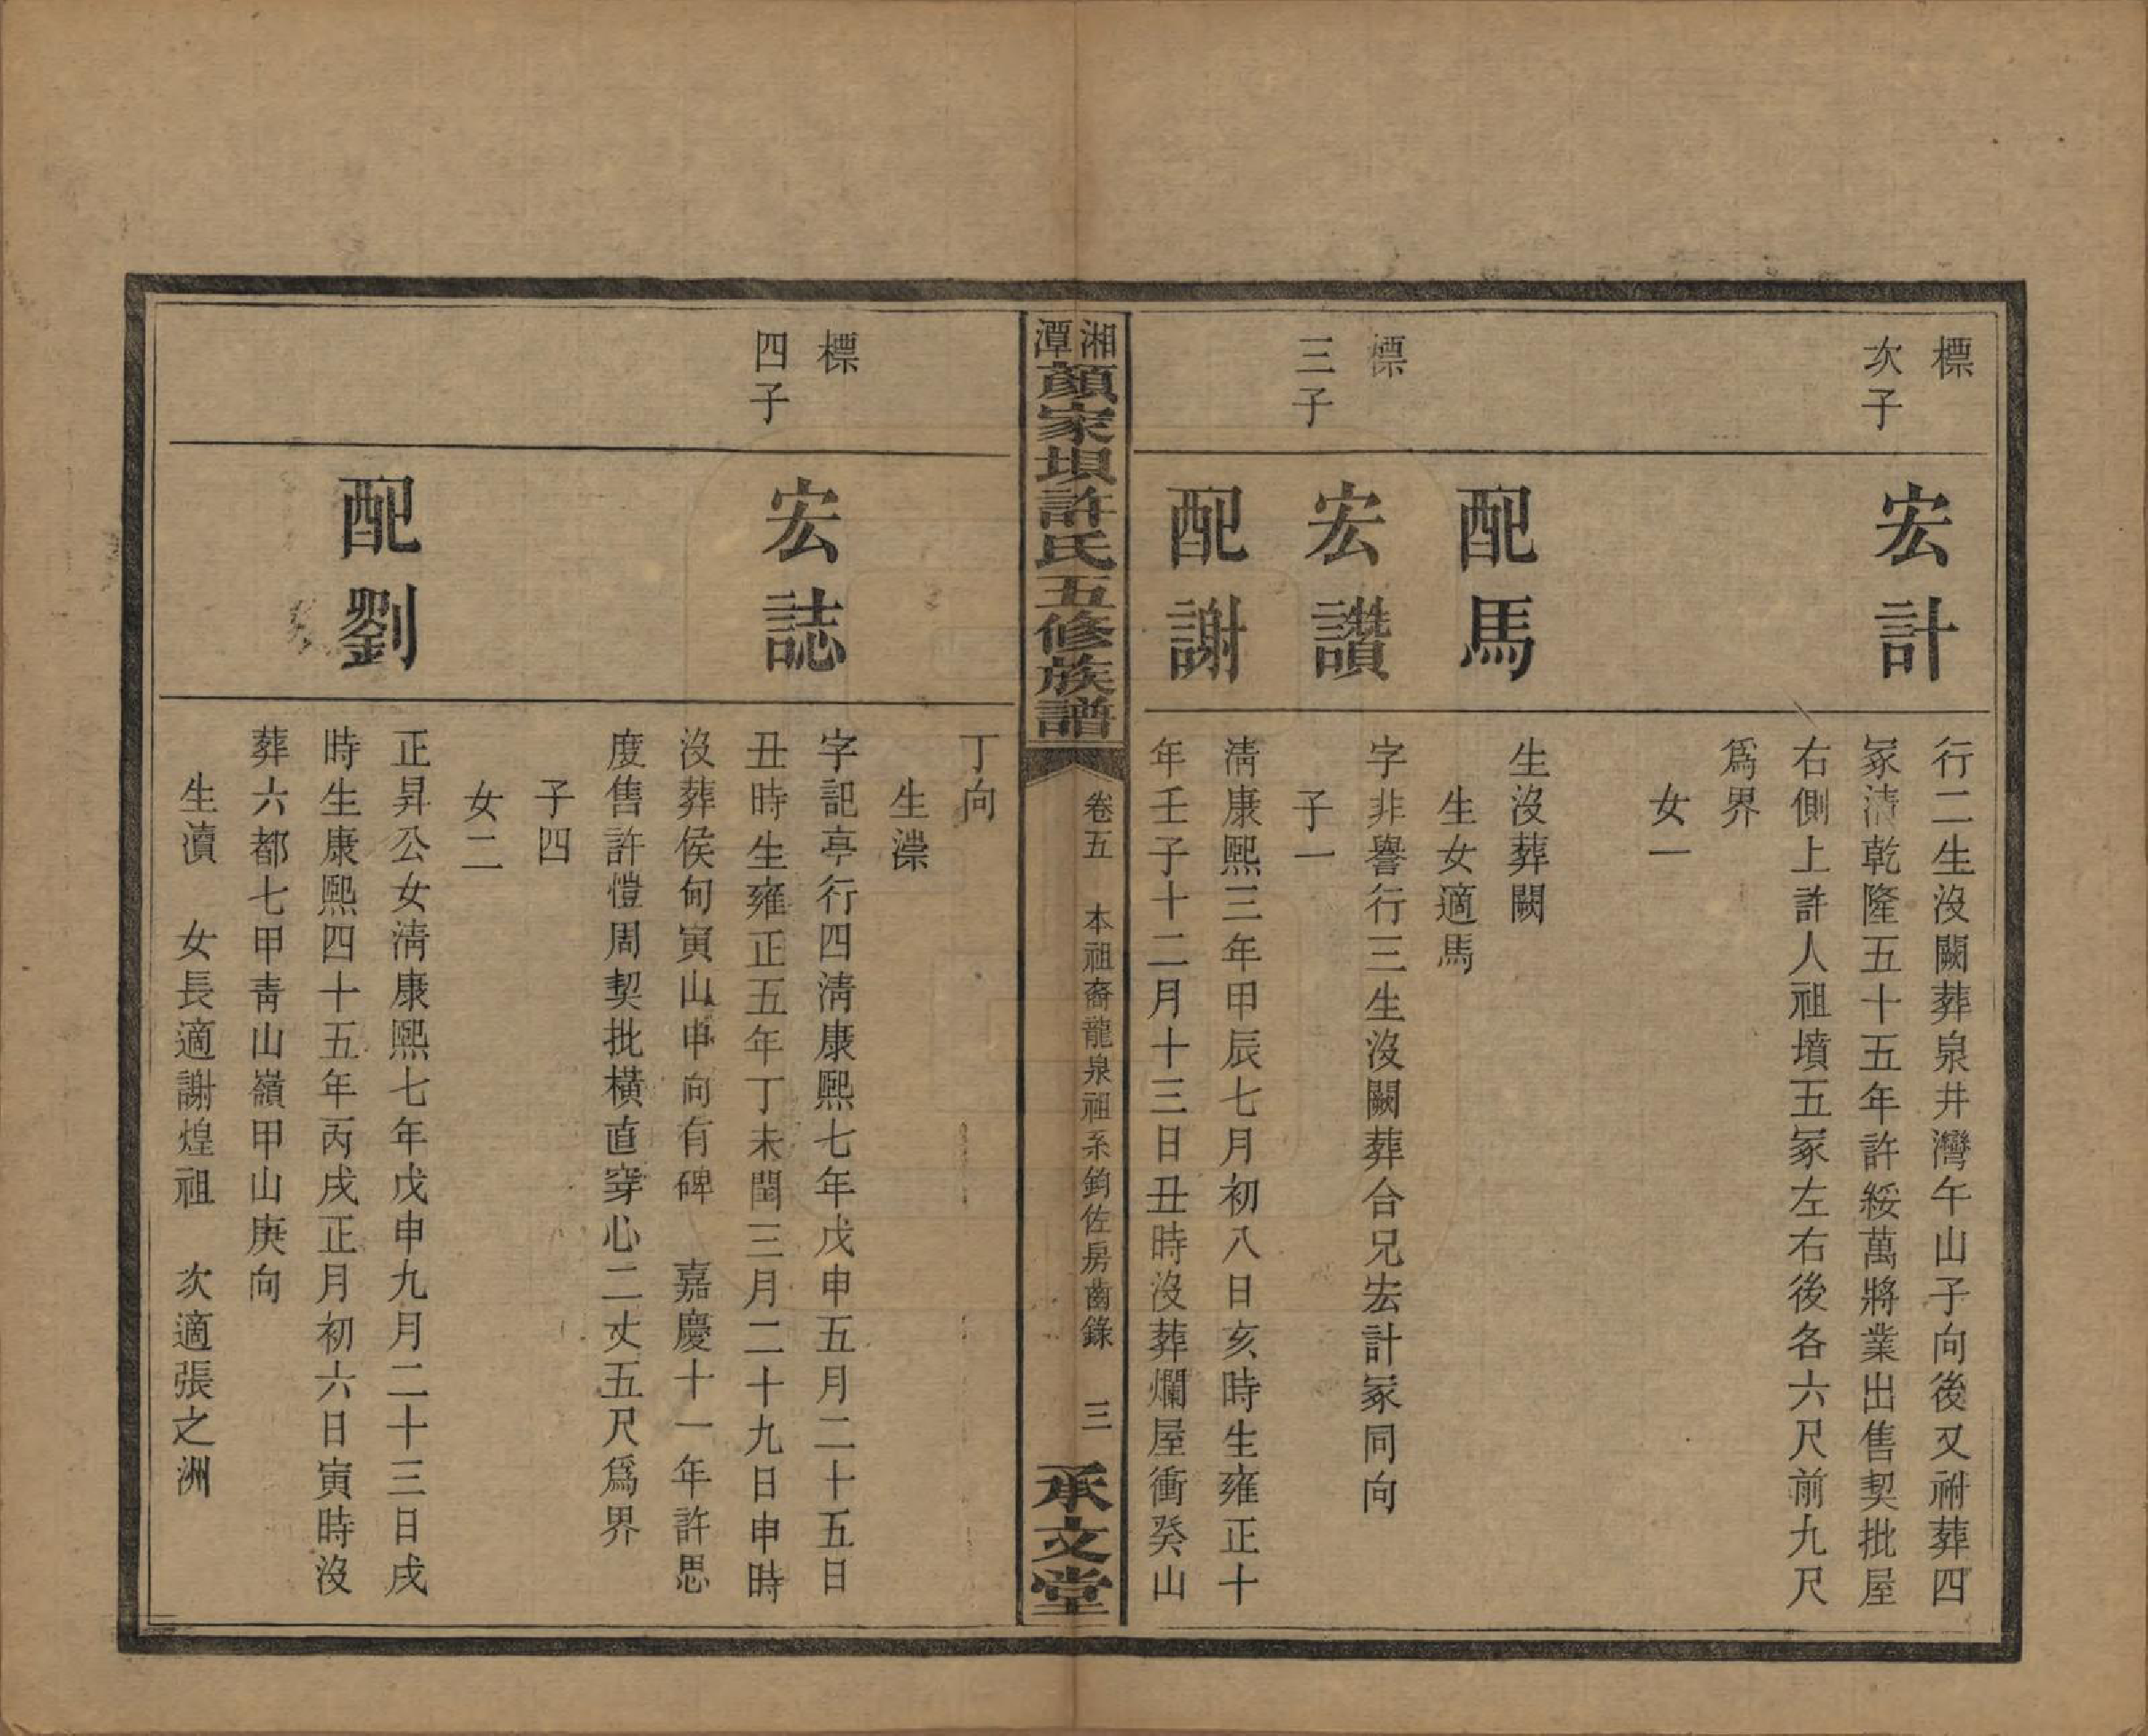 標
次子
宏計
行二生沒闕葬泉井灣午山子向後又祔葬四
冢清乾隆五十五年許綏萬將業出售契批屋
右側上許人祖墳五冢左右後各六尺前九尺
爲界
女一
配馬
生沒葬闕
生女適馬
標
三子
宏讚
字非譽行三生沒闕葬合兄宏計冢同向
子一
配謝
淸康熙三年甲辰七月初八日亥時生雍正十
年壬子十二月十三日丑時沒葬爛屋衝癸山
湘潭顏家垻許氏五修族譜
卷五 本祖裔龍泉祖系鈞佐房齒錄 三
承文堂
丁向
生澿
標
四子
宏誌
字記亭行四淸康熙七年戊申五月二十五日
丑時生雍正五年丁未閏三月二十九日申時
沒葬侯甸寅山申向有碑 嘉慶十一年許思
度售許愷周契批橫直穿心二丈五尺爲界
子四
女二
配劉
正昇公女淸康熙七年戊申九月二十三日戌
時生康熙四十五年丙戌正月初六日寅時沒
葬六都七甲靑山嶺甲山庚向
生瀆 女長適謝煌祖 次適張之洲